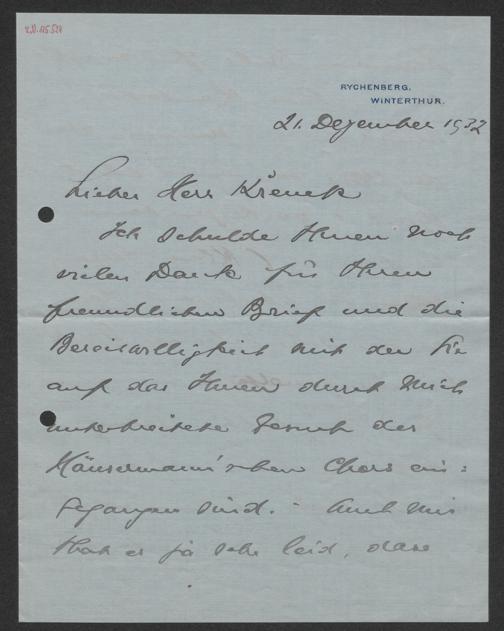 RYCHENBERG.
WINTERTHUR.
21. Dezember 1932
Lieber Herr Křenek
Ich schulde Ihnen noch
vielen Dank für Ihren
freundlichen Brief und die
Bereitwilligkeit mit der Sie
auf das Ihnen durch mich
unterbreitete Gesuch des
Häusermann'schen Chors ein=
gegangen sind. - Auch mir
that es ja sehr leid, dass